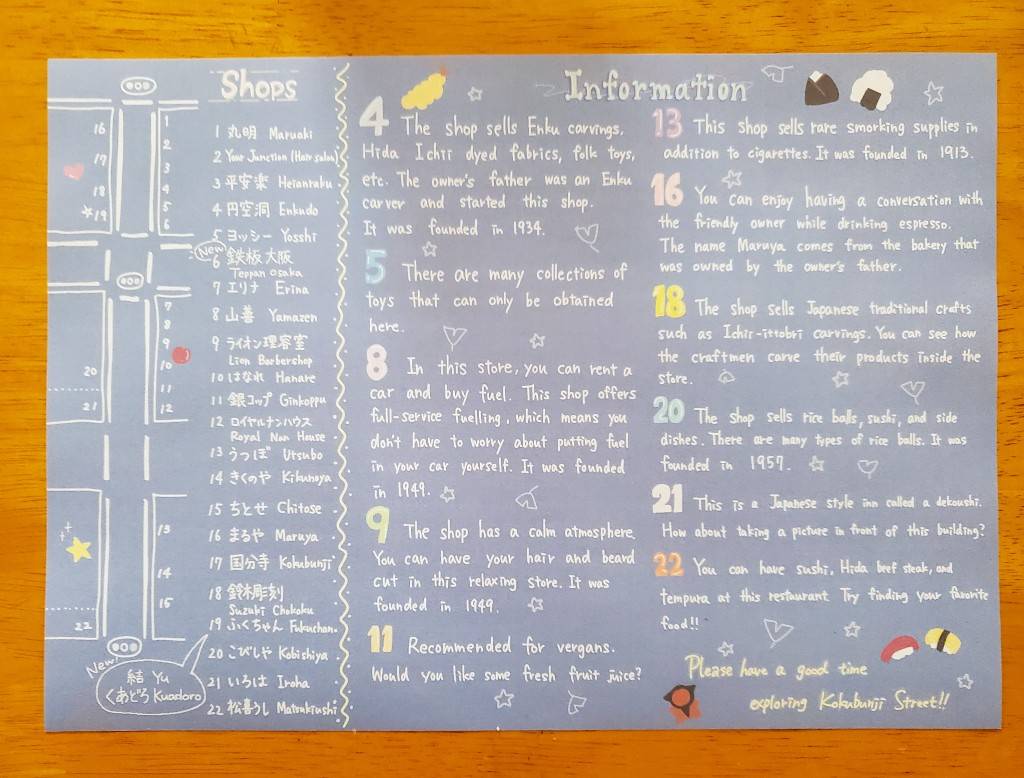 Shops
16
17
18
19
1
2
3
4
5
6
7
8
9
10
11
12
20
21
13
14
15
22
1 丸明 Maruaki
2 Your Junction (Hair salon)
3 平安楽 Heianraku
4 円空洞 Enkudo
5 ヨッシー Yosshi
New
6 鉄板大阪
Teppan osaka
7 エリナ Erina
8 山善 Yamazen
9 ライオン理容室
Lion Barbershop
10 はなれ Hanare
11 銀コップ Ginkoppu
12 ロイヤルナンハウス
Royal Nan House
13 うつぼ Utsubo
14 きくのや Kikunoya
15 ちとせ Chitose
16 まるや Maruya
17 国分寺 Kokubunji
18 鈴木彫刻
Suzuki Chokoku
19 ふくちゃん Fukuchan
20 こびしや Kobishiya
21 いろは Iroha
22 松喜うし Matsukiushi
New
結 Yu
くあどろ Kuadoro
Information
4 The shop sells Enku carvings.
Hida Ichii dyed fabrics, folk toys,
etc. The owner's father was an Enku
carver and started this shop.
It was founded in 1934.
5 There are many collections of
toys that can only be obtained
here.
8 In this store, you can rent a
car and buy fuel. This shop offers
full-service fuelling, which means you
don't have to worry about putting fuel
in your car yourself. It was founded
in 1949.
9 The shop has a calm atmosphere.
You can have your hair and beard
cut in this relaxing store. It was
founded in 1949.
11 Recommended for vergans.
Would you like some fresh fruit juice?
13 This shop sells rare smorking supplies in
addition to cigarettes. It was founded in 1913.
16 You can enjoy having a conversation with
the friendly owner while drinking espresso.
The name Maruya comes from the bakery that
was owned by the owner's father.
18 The shop sells Japanese traditional crafts
such as Ichii-ittobri carvings. You can see how
the craftmen carve their products inside the
store.
20 The shop sells rice balls, sushi, and side
dishes. There are many types of rice balls. It was
founded in 1957.
21 This is a Japanese style inn called a dekoushi.
How about taking a picture in front of this building?
22 You can have sushi, Hida beef steak, and
tempura at this restaurant. Try finding your favorite
food!!
Please have a good time
exploring Kokubunji Street!!